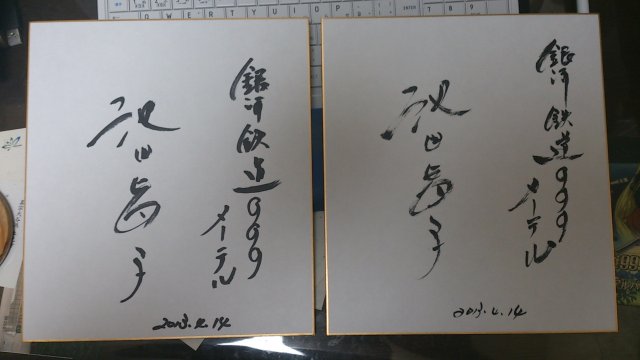 銀河鉄道999
メーテル
池田昌子
2013.4.14
銀河鉄道999
メーテル
池田昌子
2013.4.14